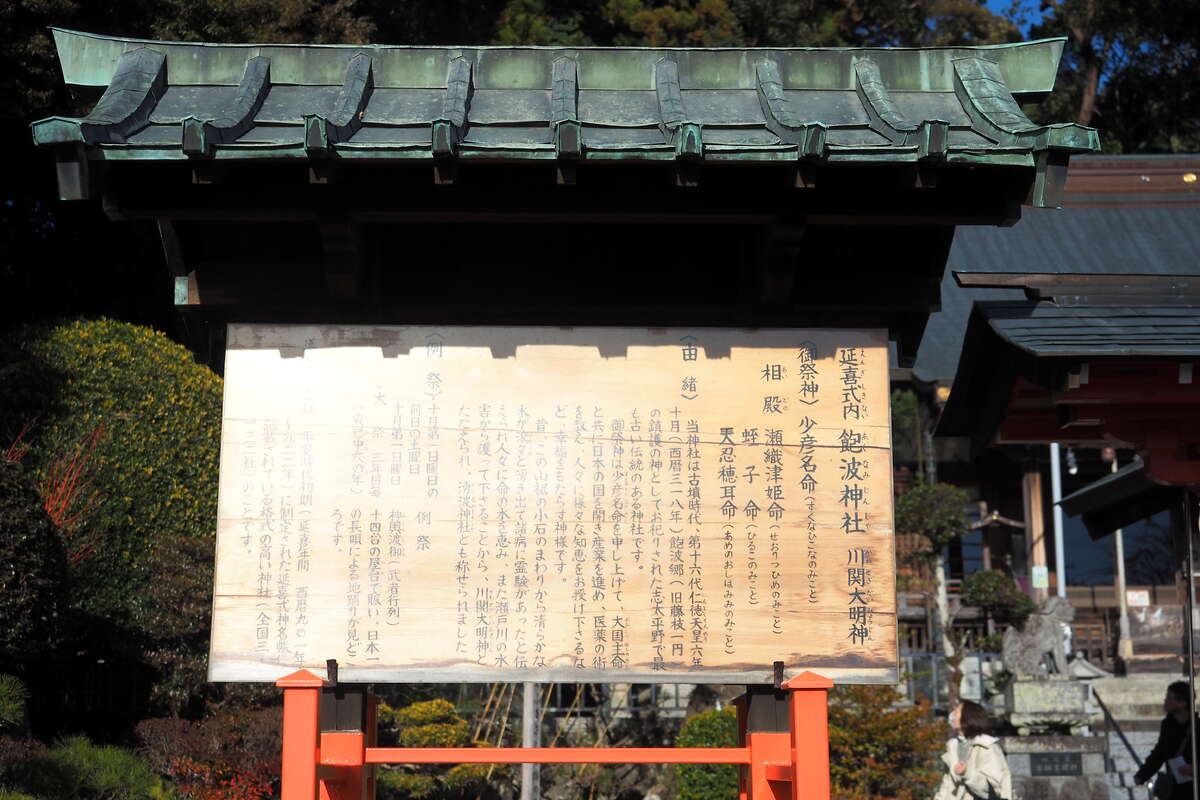 延喜式内 飽波神社 川関大明神
えんぎしきない あくなみじんじゃ
(御祭神)少彦名命(すくなひこなのみこと)
相殿 瀬織津姫命(せおりつひめのみこと)
あいどの
蛭子命(ひるこのみこと)
天忍穂耳命(あめのおしほみみのみこと)
(由緒)
当神社は古墳時代、第十六代仁徳天皇六年
十月(西暦三一八年)飽波郷(旧藤枝一円)
の鎮護の神としてお祀りされた志太平野で最
も古い伝統のある神社です。
御祭神は少彦名命を申し上げて、大国主命
と共に日本の国を開き産業を進め、医薬の術
を教え、人々に様々な知恵をお授け下さるな
ど、幸福をもたらす神様です。
昔、この山裾の小石のまわりから清らかな
水が沸々と湧き出て諸病に霊験があったと伝
えられ人々に命の水を恵み、また瀬戸川の水
害から護って下さることから、川関大明神と
たたえられ、湧波神社とも称せられました。
(例祭)十月第一日曜日の 例祭
前日の土曜日
十月第一日曜日 神輿渡御(武者行列)
大祭 三年目毎 十四台の屋台で賑い、日本一
(寅巳申亥の年) の長唄による地踊りが見どこ
ろです。
とは、平安時代初期(延喜年間 西暦九〇一年
~九二二年)に制定された延喜式神名帳に
記載されている格式の高い神社(全国三一
三二社)のことです。